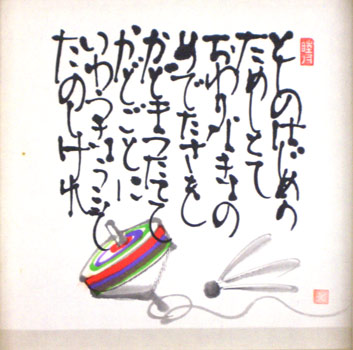 としのはじめの
ためしとて
おわりなきよの
めでたさを
かどまつたてて
かどごとに
いわうきょうこそ
たのしけれ
睦月